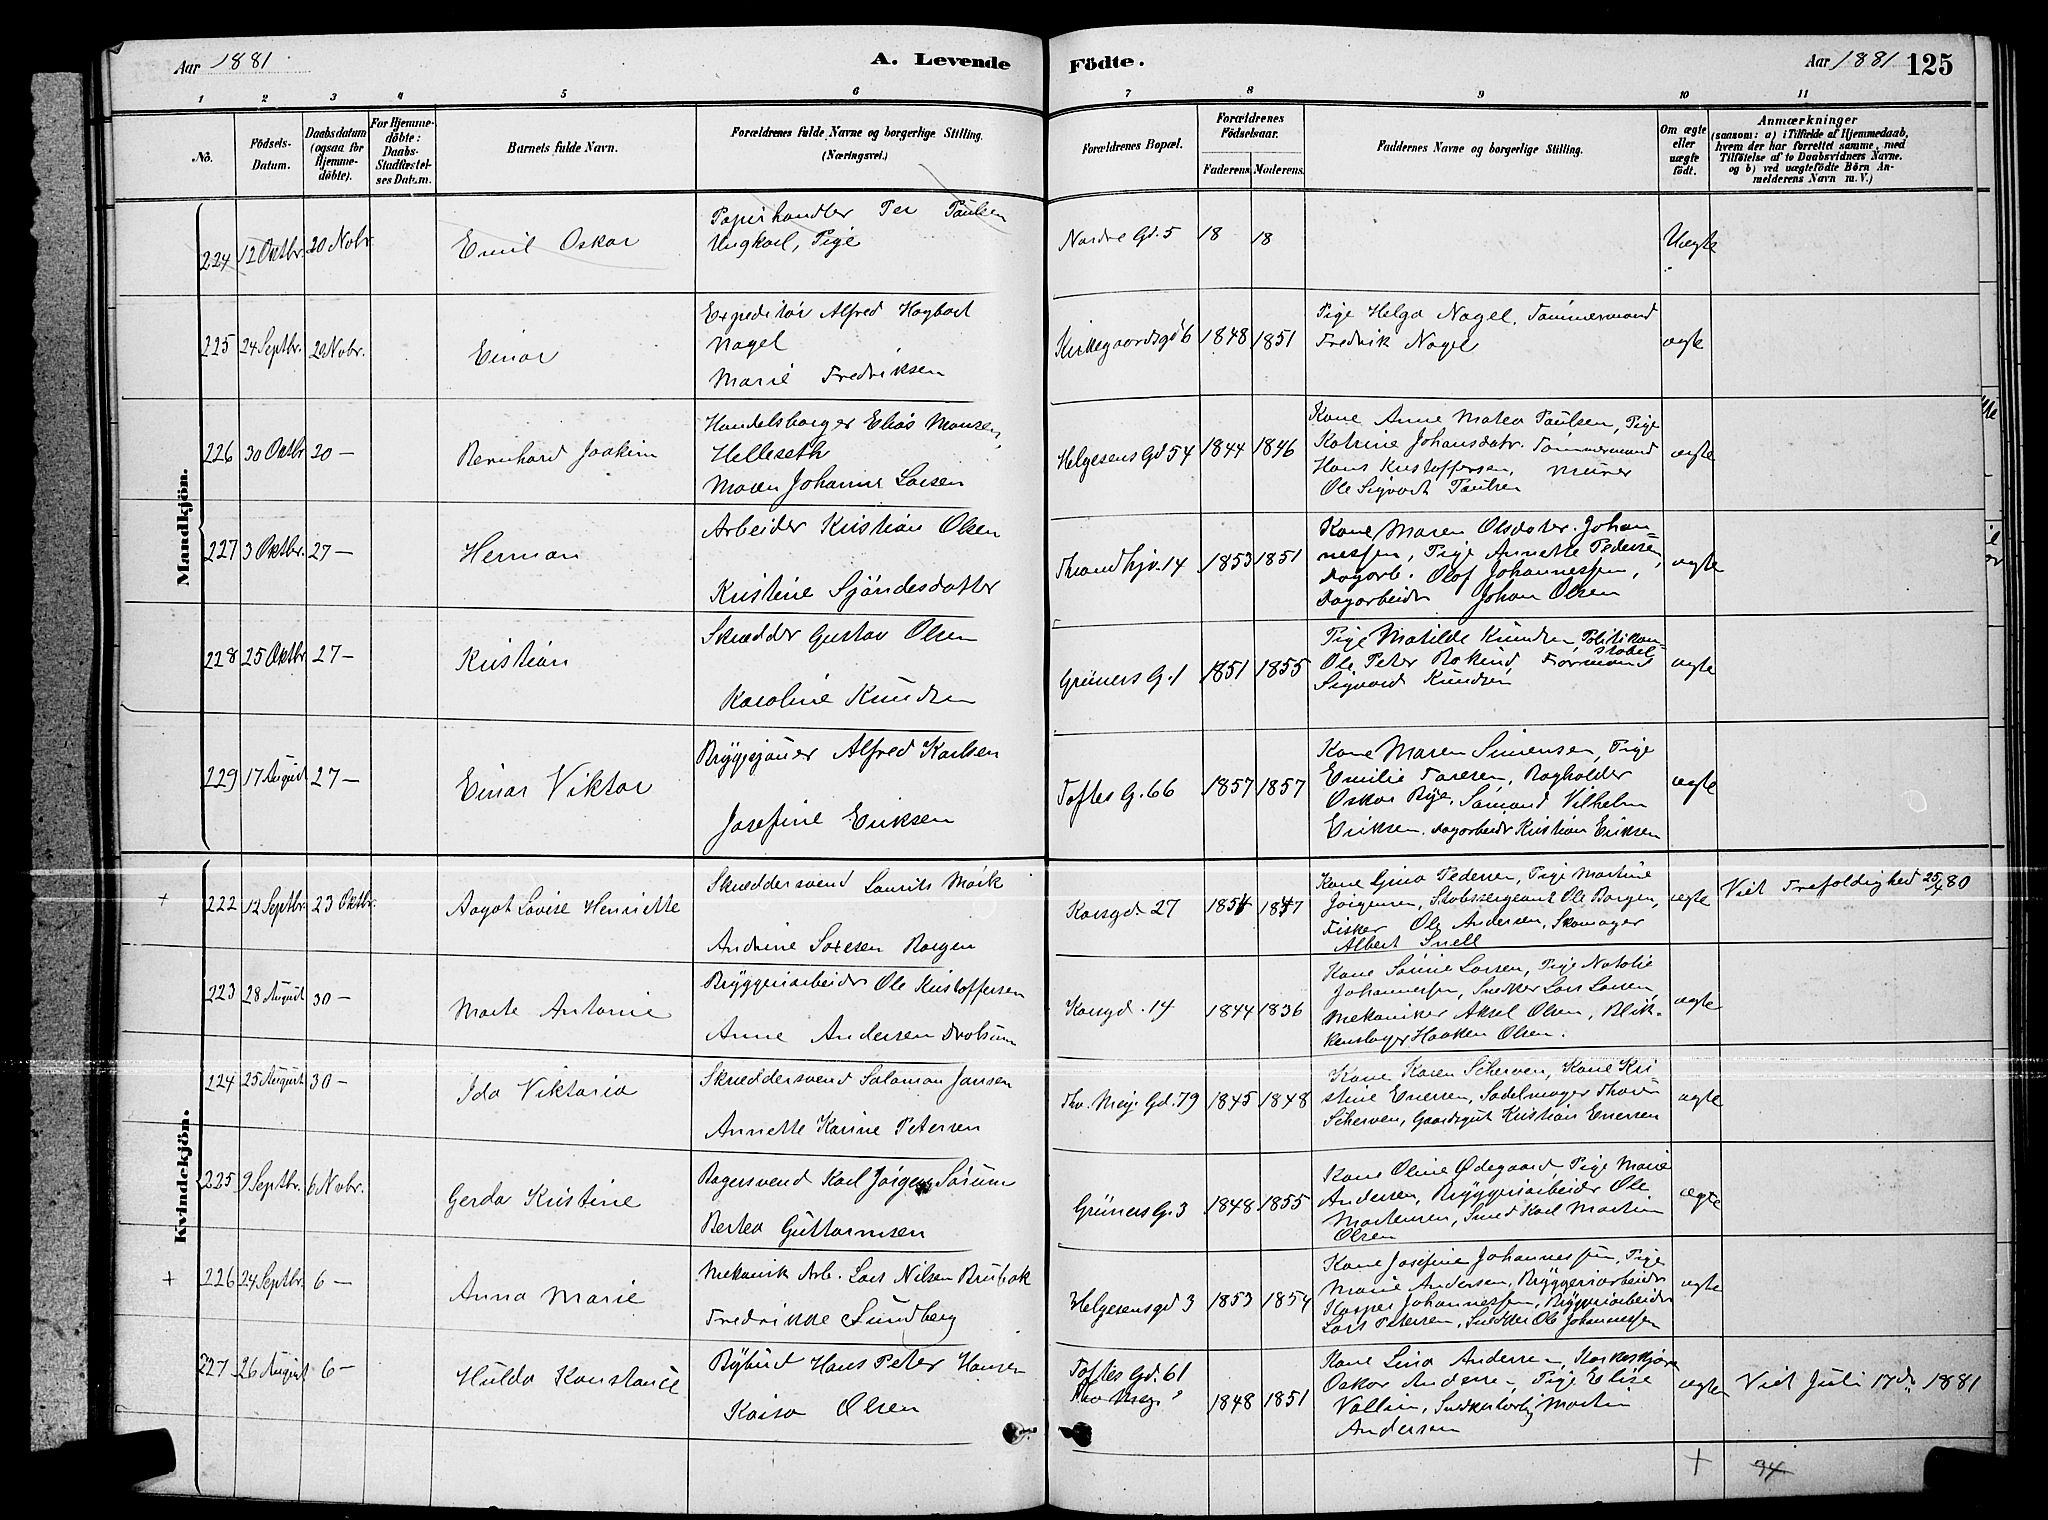 Aar 1881
A. Levende Födte.
Aar 1881 125
1 2 3 4 5 6 7 8 9 10 11
No.
Födsels-
Datum.
Daabsdatum
(ogsaa for
Hjemme-
döbte).
For Hjemme-
döbte:
Daabs-
Stadfæstel-
ses Datum.
Barnets fulde Navn.
Forældrenes fulde Navne og borgerlige Stilling.
(Næringsvei.)
Forældrenes Bopæl.
Forældrenes
Födselsaar.
Faderens. Moderens.
Faddernes Navne og borgerlige Stilling.
Om ægte
eller
uægte
født.
Anmærkninger
(saasom: a) i Tilfælde af Hjemmedaab,
hvem der har forrettet samme, med
Tilföielse af to Daabsvidners Navne.
og b) ved uægtefödte Börn An-
melderens Navn m. V.)
Mandkjön.
224 12 Oktbr. 20 Novbr.
Emil Oskar
Papirhandler Per Paulsen
Ungkarl, Pige
Nordre Gd. 5 18 18
Uægte
225 24 Septbr. 20 Novbr.
Einar
Expeditör Alfred Hagbart
Nagel
Marie Fredriksen
Kirkegaardsgd 6 1848 1851
Pige Helga Nagel, Tömmermand
Fredrik Nagel
ægte
226 30 Oktbr 20 —
Bernhard Joakim
Handelsborger Elias Monsen
Helleseth
Maren Johanne Larsen
Helgesens Gd 54 1844 1846
Kone Anne Matea Paulsen, Pige
Katrine Johansdatr. Tömmermand
Hans Kristoffersen, Murer
Ole Sigvart Paulsen
ægte
227 3 Oktbr. 27 —
Herman
Arbeider Kristian Olsen
Kristine Sjöndesdatter
Throndhjv. 14 1853 1851
Kone Maren Olsdater Johan-
nessen, Pige Annette Pedersen,
Dagarb. Olof Johannessen,
Dagarbeider Johan Olsen
ægte
228 25 Oktbr 27 —
Kristian
Skrædder Gustav Olsen
Karoline Knudsen
Grüners G. 1 1851 1855
Pige Matilde Knudsen, Politikon-
stabel
Ole Peter Formand
Sigvard Knudsen
ægte
229 17 August 27 —
Einar Viktor
Bryggejauer Alfred Karlsen
Josefine Eriksen
Toftes G. 66 1857 1857
Kone Maren Simensen, Pige
Emilie Bogholder
Oskar Bye, Sömand Vilhelm
Eriksen. Dagarbeider Kristian Eriksen
ægte
Kvindekjön.
+ 222 12 Septbr. 23 Oktbr.
Aagot Lovise Henriette
Skræddersvend Laurits Mörk
Andrine Borgen
Korsgd. 27 1854 1847
Kone Gina Pedersen, Pige Martine
Jörgensen, Stabssergeant Ole Borgen,
Fisker Ole Andersen, Skomager
Albert Snell
ægte
Viet Trefoldighed 25/4 80
223 28 August 30 —
Marte Antonie
Bryggeriarbeider Ole Kristoffersen
Anne Andersen Drolsum
Korsgd. 14 1844 1836
Kone Larsen, Pige Natalie
Johannessen, Snedker Lars Larsen,
Mekaniker Aksel Olsen, Blik-
kenslager Haaken Olsen.
ægte
224 25 August 30 —
Ida Viktoria
Skræddersvend Salamon Jansen
Annette Karine Petersen
Thv. Meij. Gd. 79 1845 1848
Kone Karen Scherven, Kone Kri-
stine Enersen, Sadelmager
Scherven, Gaardsgut Kristian Enersen
ægte
225 9 Septbr. 6 Novbr.
Gerda Kristine
Bagersvend Karl Jörgen Sörum
Bertea Guttormsen
Grüners G. 3 1848 1855
Kone Oline Ødegaard, Pige Marie
Andersen, Bryggeriarbeider Ole
Mortensen, Smed Karl Martin
Olsen
ægte
+ 226 24 Septbr. 6 —
Anna Marie
Mekanisk Arb. Lars Nilsen Brubak
Fredrikke Sundberg
Helgesensgd 3 1853 1854
Kone Josefine Johannessen, Pige
Marie Andersen, Bryggeriarbeider
Kasper Johannessen, Bryggeriarbeider
Lars Petersen, Snedker Ole Johannessen
ægte
227 26 August 6 —
Hulda Konstance
Bybud Hans Peter Hansen
Kaisa Olsen
Toftes Gd. 61
Thv Meij. 1848 1851
Kone Lina Andersen,
Oskar Pige Elise
Vallin, Martin
Andersen
ægte
Viet Juli 17d. 1881
+ 94